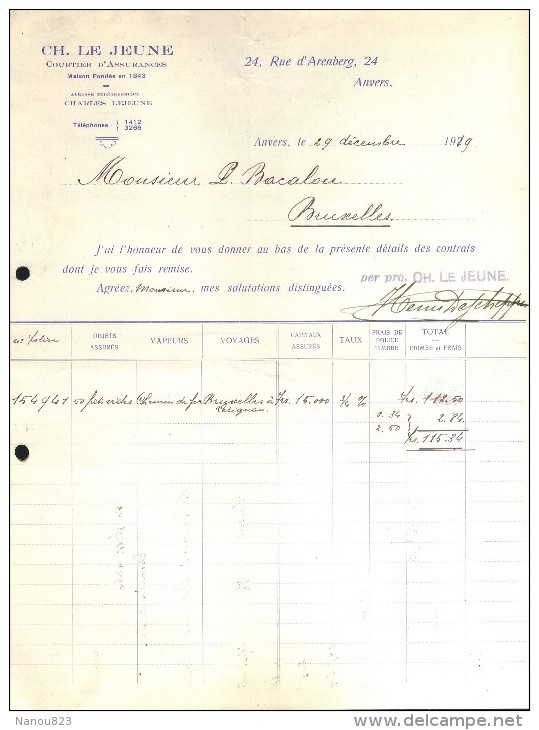 CH. LE JEUNE
COURTIER D'ASSURANCES
Maison Fondée en 1843
ADRESSE TÉLÉGRAPHIQUE:
CHARLES LEJEUNE
Téléphones: 1412
3266
24, Rue d'Arenberg, 24
Anvers.
Anvers, le 29 décembre 1919
Monsieur P. Bacalou
Bruxelles.
J'ai l'honneur de vous donner au bas de la présente détails des contrats
dont je vous fais remise.
Agréez, Monsieur, mes salutations distinguées.
per pro. CH. LE JEUNE.
OBJETS ASSURÉS VAPEURS VOYAGES CAPITAUX ASSURÉS TAUX FRAIS DE POLICE TIMBRE TOTAL — PRIMES et FRAIS
154941 50 futs vides Chemin de fer Bruxelles à Frs. 15.000 3/4 % Frs. 112.50
Carignan 0.34 2.84
2.50 Frs. 115.34
Nanou823
delcampe.net